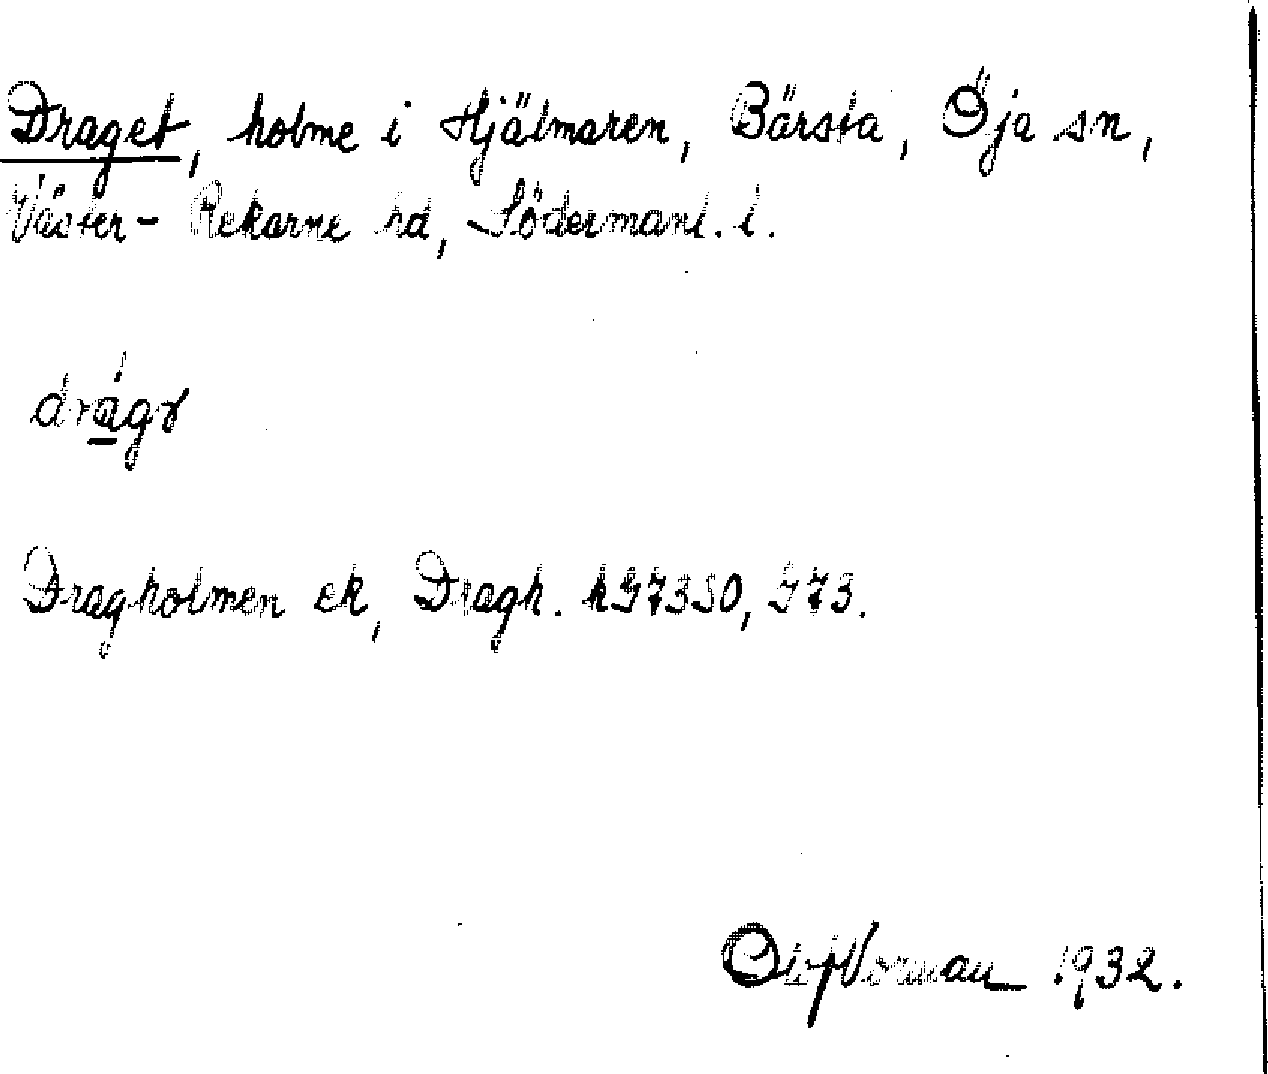 Draget, holme i Hjälmaren, Bärsta, Öja sn,
Väster-Rekarne hd, Södermanl. l.
drágə
Dragholmen ek, Dragh. hGV330, GV3.
Olof Norman 1932.